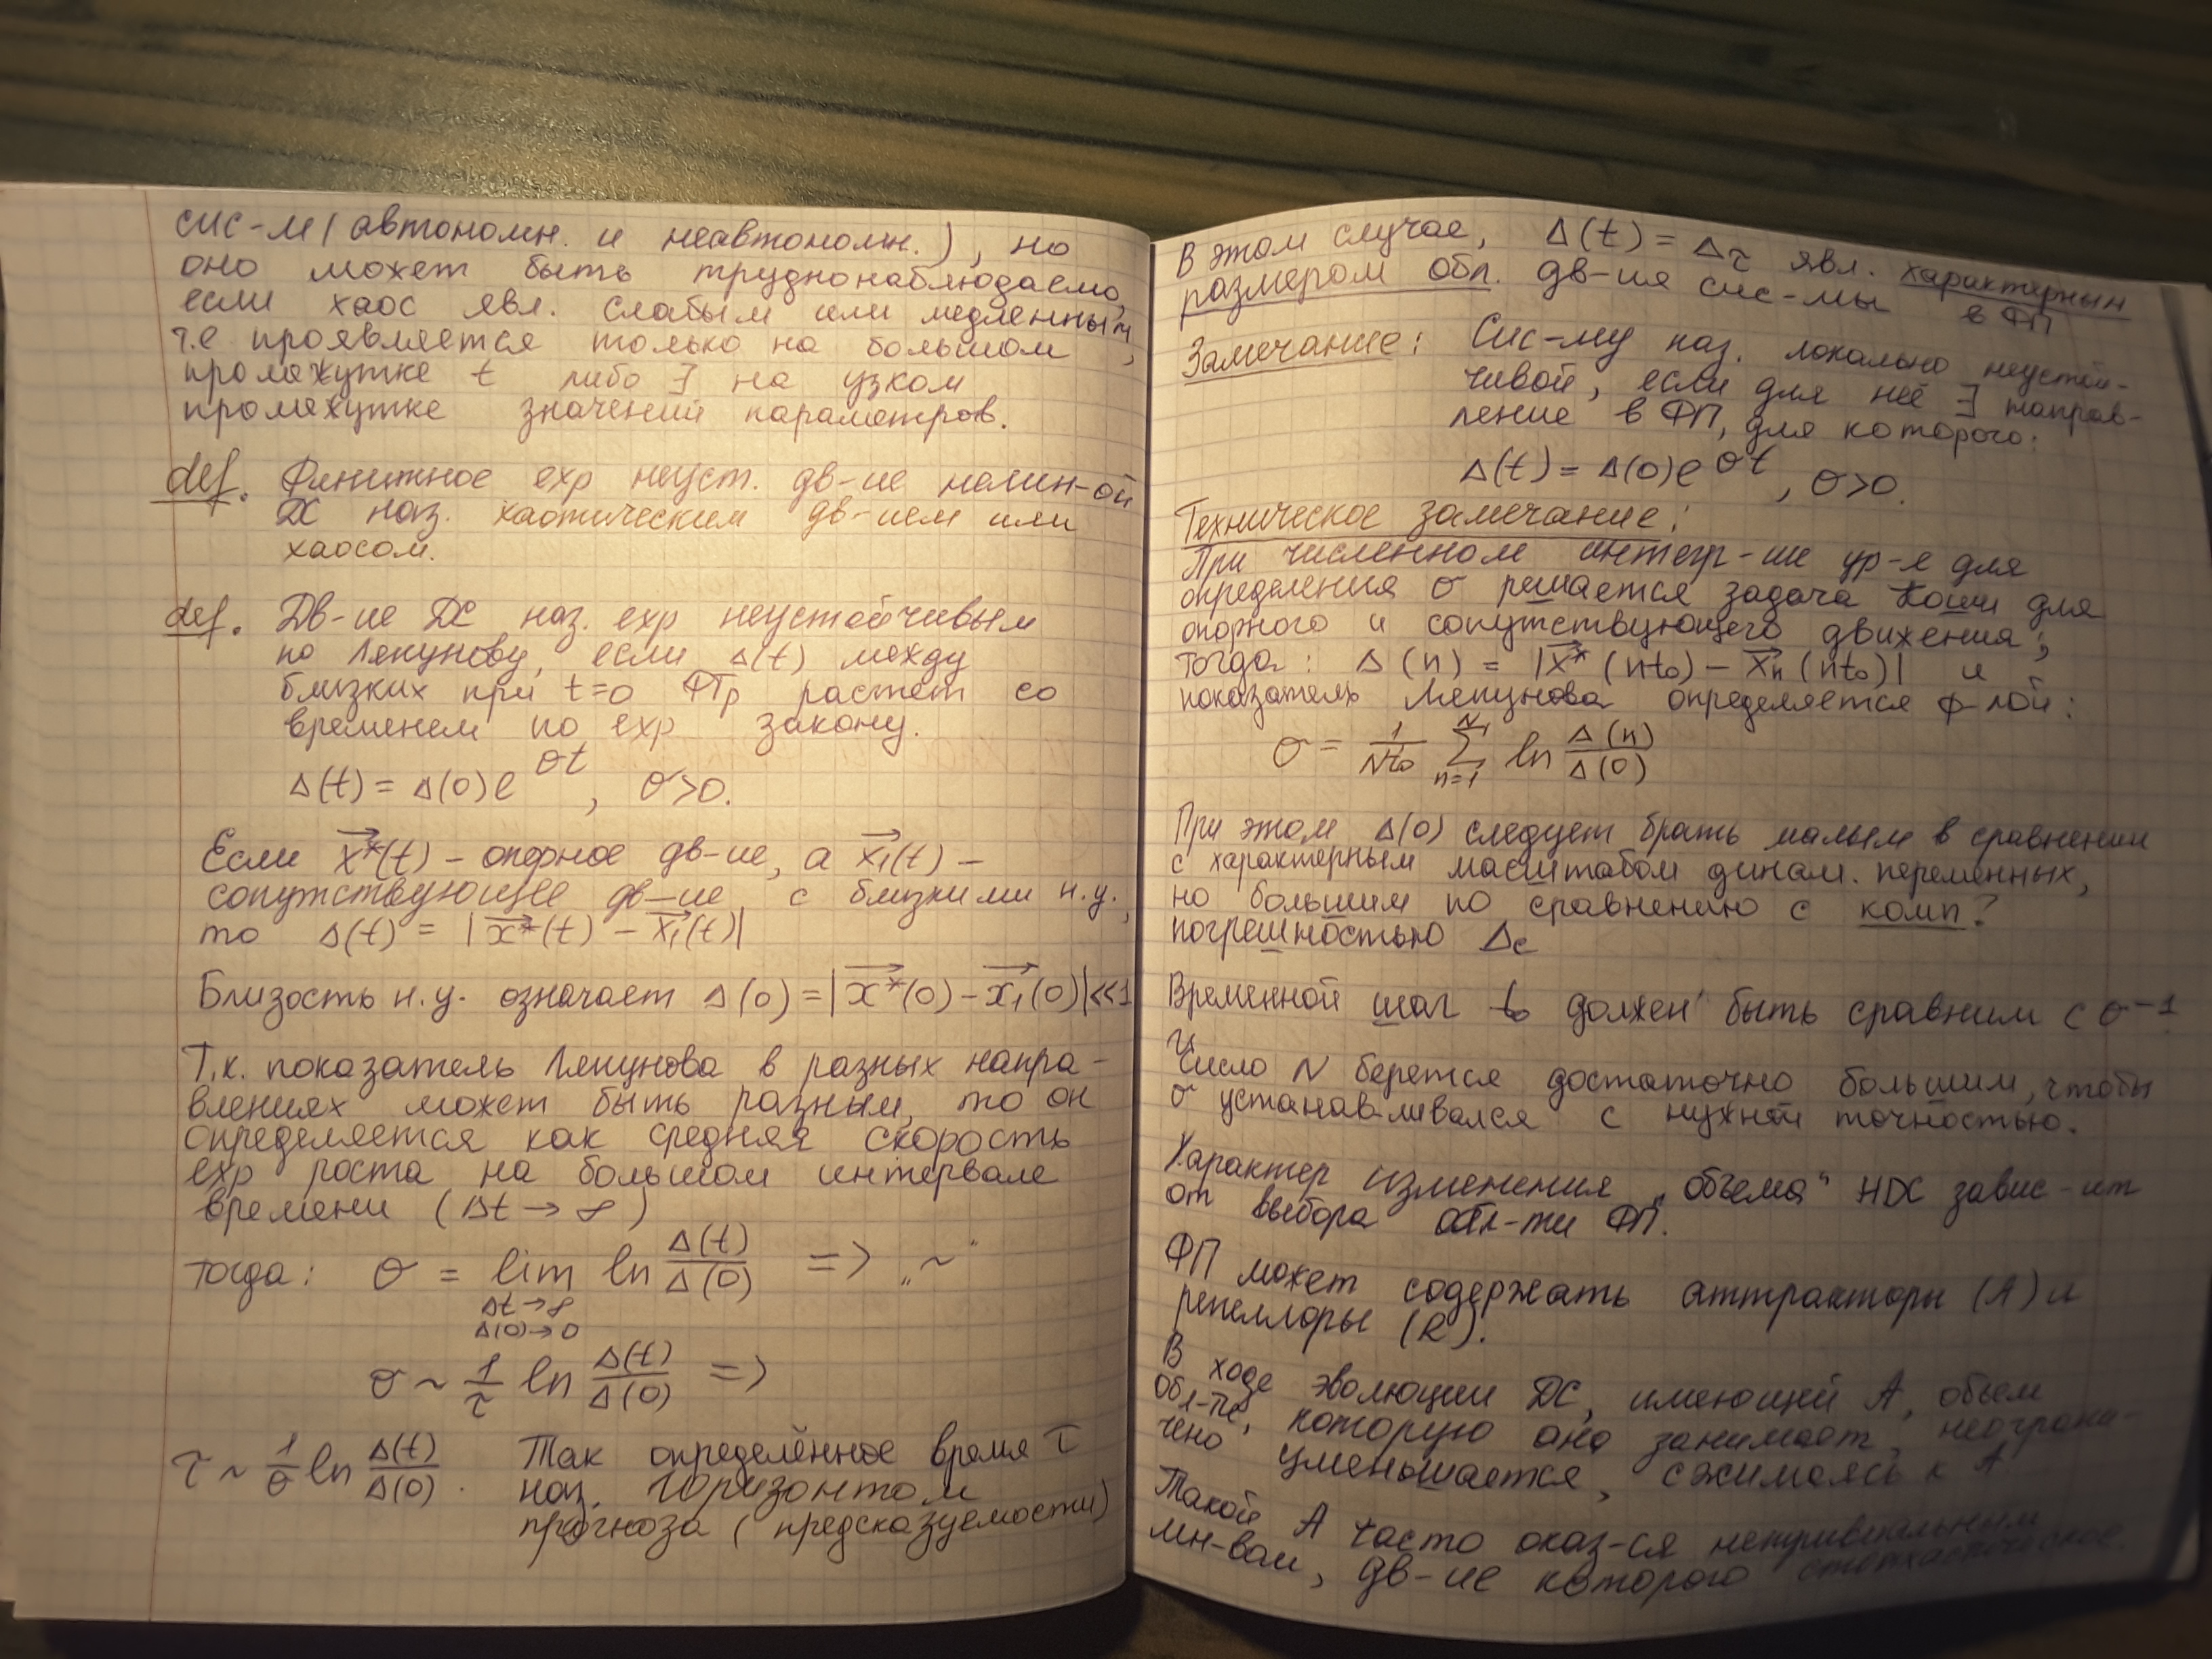 сис-м (автономн. и неавтономн.), но
оно может быть труднонаблюдаемо,
если хаос явл. слабым или медленным,
т.е проявляется только на большом
промежутке t либо ∃ на узком
промежутке значений параметров.
def. Финитное exp неуст. дв-ие нелин-ой
ДС наз. хаотическим дв-ием или
хаосом.
def. Дв-ие ДС наз. exp неустойчивым
по Ляпунову, если Δ(t) между
близких при t=0 ФТр растет со
временем по exp закону.
Δ(t) = Δ(0)e^{σt}, σ>0.
Если \vec{x^*}(t) – опорное дв-ие, а \vec{x_1}(t) –
сопутствующее дв-ие с близкими н.у.,
то Δ(t) = |\vec{x^*}(t) – \vec{x_1}(t)|
Близость н.у. означает Δ(0) = |\vec{x^*}(0) – \vec{x_1}(0)| <<1
Т.к. показатель Ляпунова в разных напра-
влениях может быть разным, то он
определяется как средняя скорость
exp роста на большом интервале
времени (Δt → ∞)
тогда: σ = lim_{Δt→∞, Δ(0)→0} ln \frac{Δ(t)}{Δ(0)} => „~"
σ ~ \frac{1}{τ} ln \frac{Δ(t)}{Δ(0)} =>
τ ~ \frac{1}{σ} ln \frac{Δ(t)}{Δ(0)}. Так определённое время τ
наз. горизонтом
прогноза (предсказуемости)
В этом случае, Δ(t) = Δ_τ явл. характерным
размером обл. дв-ия сис-мы в ФП
Замечание: Сис-му наз. локально неустой-
чивой, если для неё ∃ направ-
ление в ФП, для которого:
Δ(t) = Δ(0)e^{σt}, σ>0.
Техническое замечание:
При численном интегр-ие ур-е для
определения σ решается задача Коши для
опорного и сопутствующего движения;
тогда: Δ(n) = |\vec{x^*}(nt_0) – \vec{x_n}(nt_0)| и
показатель Ляпунова определяется ф-лой:
σ = \frac{1}{Nt_0} \sum_{n=1}^{N} ln \frac{Δ(n)}{Δ(0)}
При этом Δ(0) следует брать малым в сравнении
с характерным масштабом динам. переменных,
но большим по сравнению с комп?
погрешностью Δ_c
Временной шаг t_0 должен быть сравним с σ^{-1}
Число N берется достаточно большим, чтобы
σ устанавливался с нужной точностью.
Характер изменения „объема" НДС завис-ит
от выбора обл-ти ФП.
ФП может содержать аттракторы (А) и
репеллоры (R).
В ходе эволюции ДС, имеющей А, объем
обл-ти, которую она занимает, неограни-
чено уменьшается, сжимаясь к А
Такой А часто оказ-ся нетривиальным
мн-вом, дв-ие которого стохастическое.